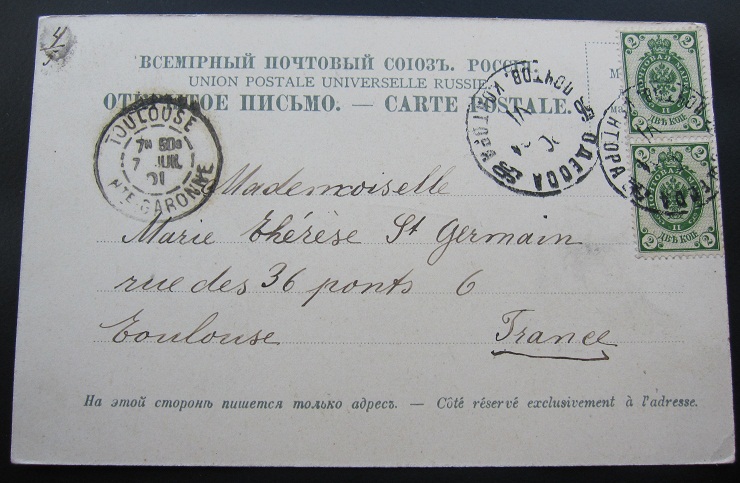 4
ВСЕМІРНЫЙ ПОЧТОВЫЙ СОЮЗЪ. РОССІЯ
UNION POSTALE UNIVERSELLE RUSSIE.
ОТКРЫТОЕ ПИСЬМО. — CARTE POSTALE.
TOULOUSE
7 JUIL
01
HTE GARONNE
ОДЕССА
ПОЧТОВ. КОНТОРА
2 2
ДВѢ КОП.
2 2
ДВѢ КОП.
Mademoiselle
Marie Thérèse St Germain
rue des 36 ponts 6
Toulouse France
На этой сторонѣ пишется только адресъ. — Côté réservé exclusivement à l'adresse.